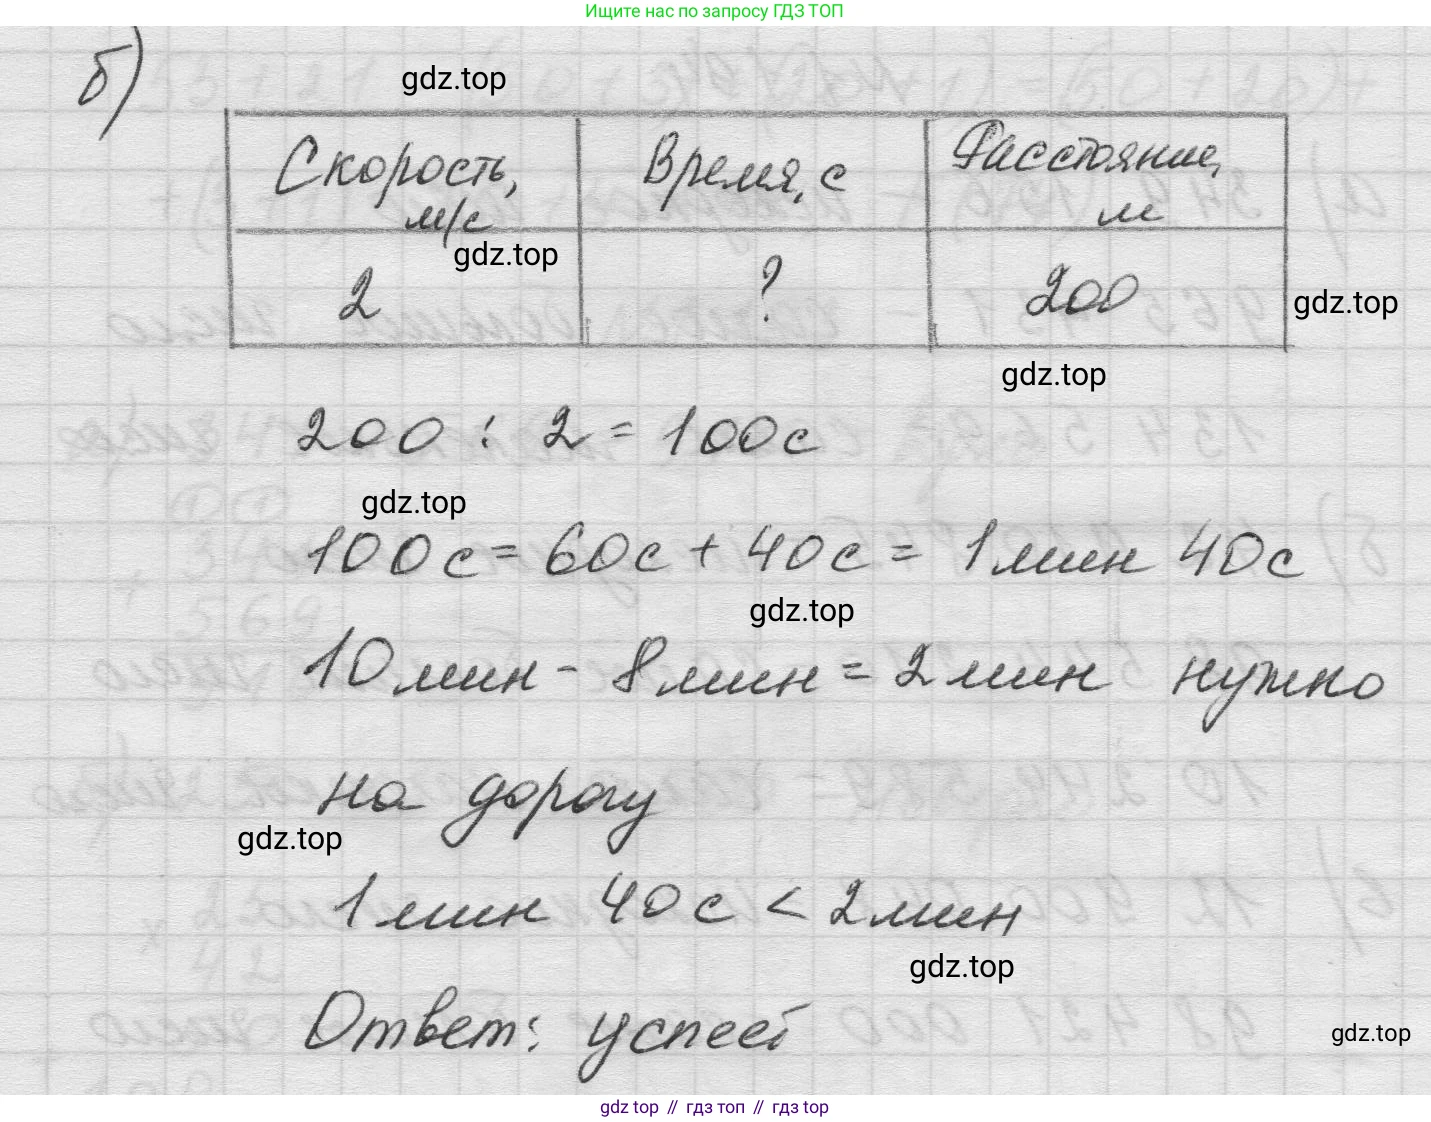 Ищите нас по запросу ГДЗ ТОП
б)
gdz.top
Скорость, м/с Время, с Расстояние, м
gdz.top
2 ? 200
gdz.top
gdz.top
200 : 2 = 100с
gdz.top
100с = 60с + 40с = 1мин 40с
gdz.top
10мин - 8мин = 2мин нужно
на дорогу
gdz.top
1мин 40с < 2мин
gdz.top
Ответ: успеет
gdz.top
gdz top // гдз топ // gdz top